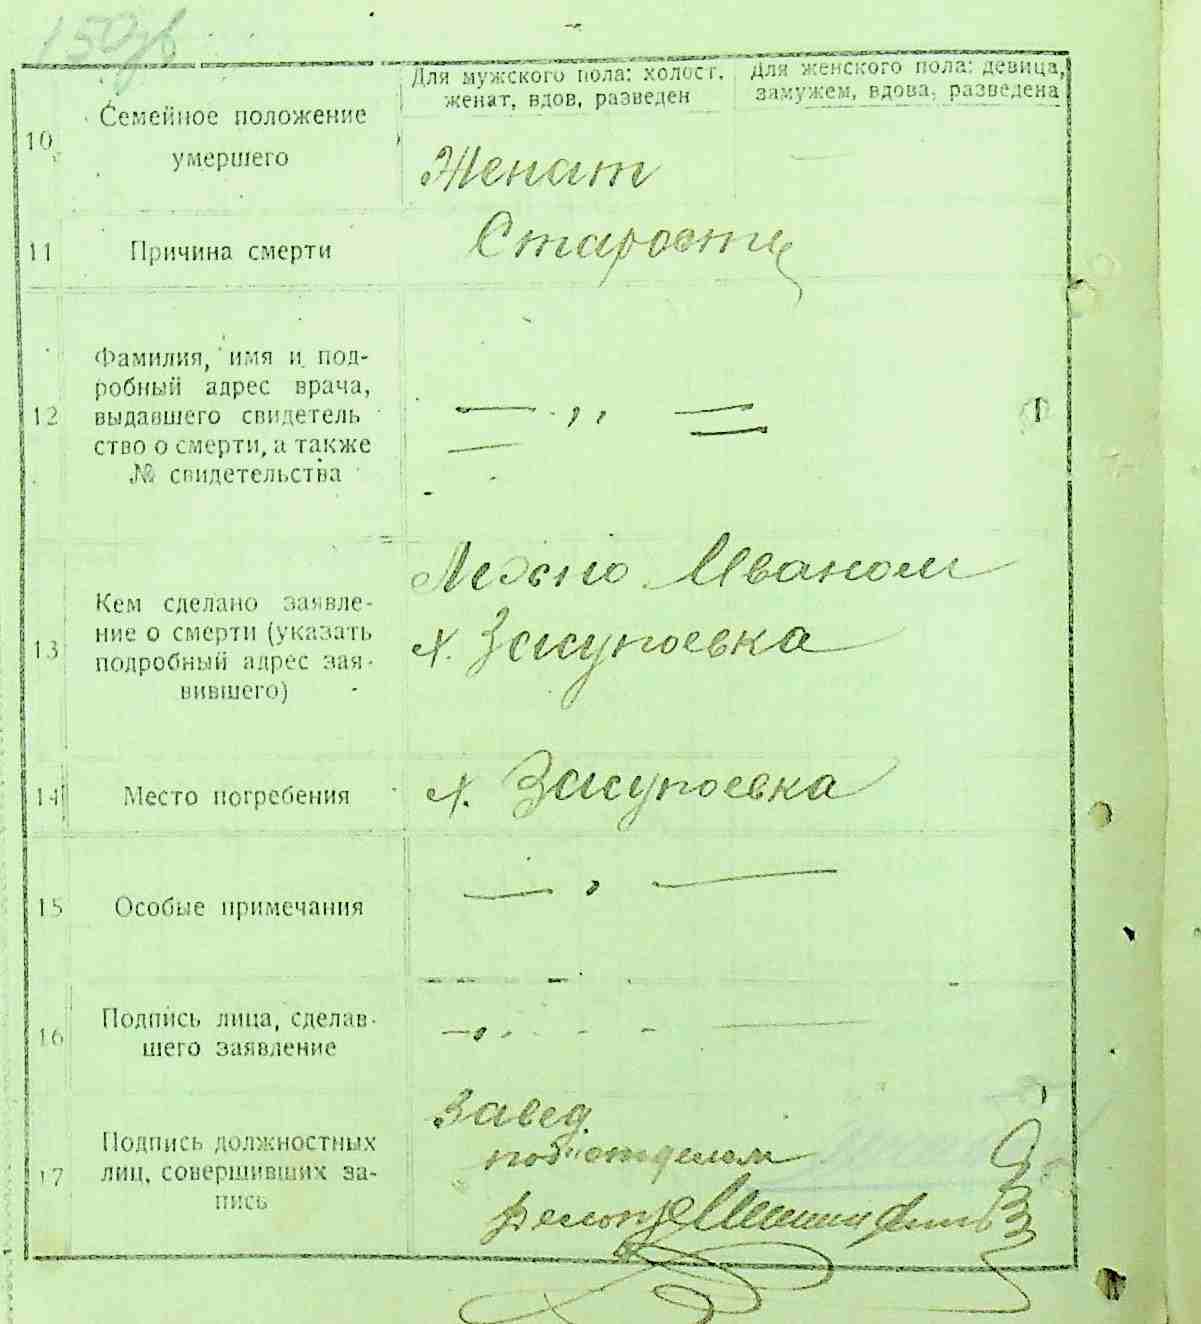 Для мужского пола: холост.
женат, вдов, разведен
Для женского пола: девица,
замужем, вдова, разведена
10
Семейное положение
умершего
Женат
11
Причина смерти
Старость
12
Фамилия, имя и под-
робный адрес врача,
выдавшего свидетель
ство о смерти, а также
№ свидетельства
13
Кем сделано заявле-
ние о смерти (указать
подробный адрес зая-
вившего)
Иваном
х. Засупоевка
14
Место погребения
х. Засупоевка
15
Особые примечания
16
Подпись лица, сделав-
шего заявление
17
Подпись должностных
лиц, совершивших за-
пись
Завед.
подотделом